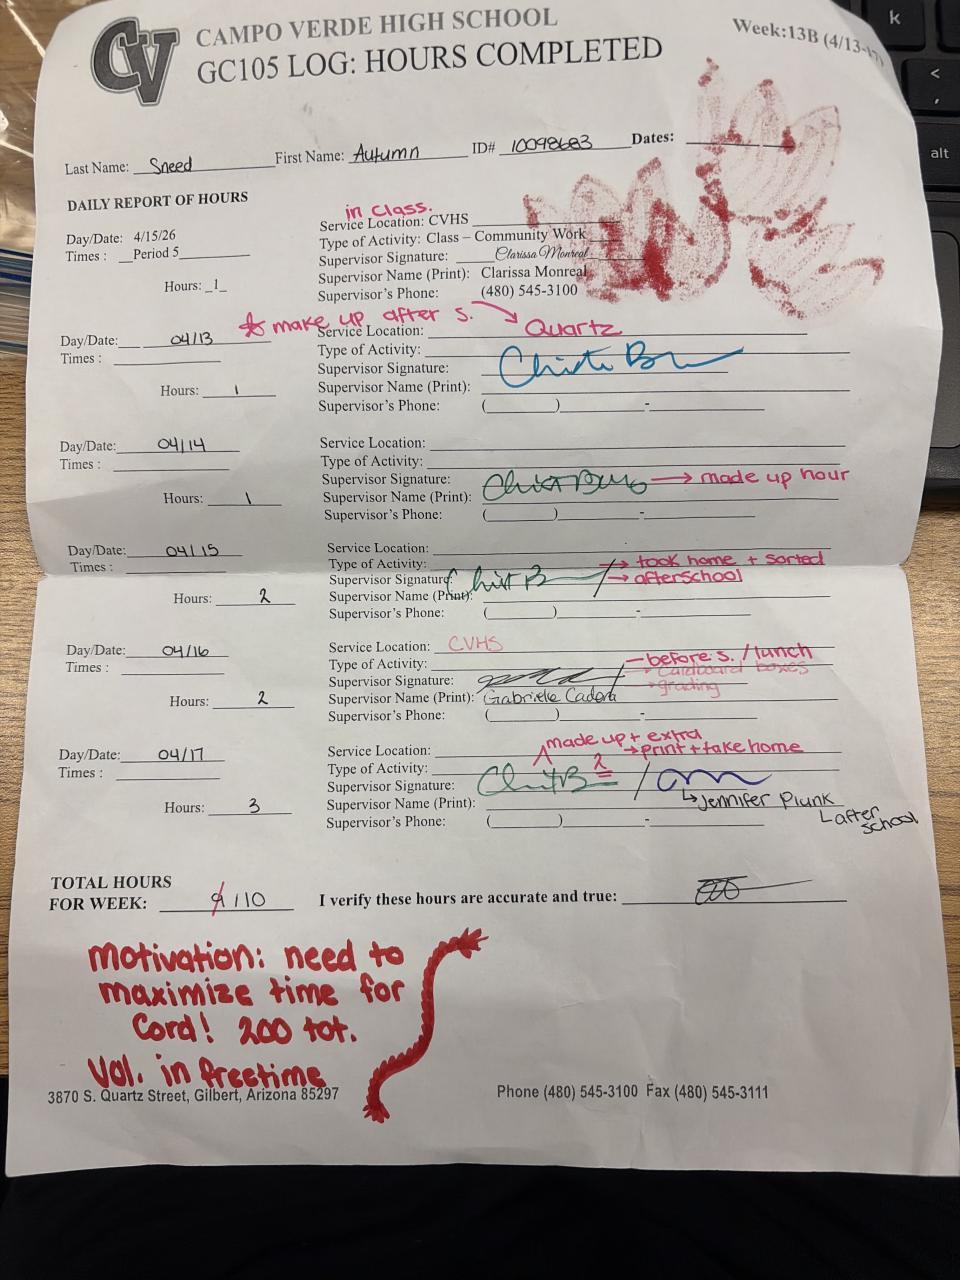 CV
CAMPO VERDE HIGH SCHOOL
GC105 LOG: HOURS COMPLETED
Week:13B (4/13-17)
Last Name: Sneed First Name: Autumn ID# 10098683 Dates:
DAILY REPORT OF HOURS
in class.
Day/Date: 4/15/26
Times : Period 5
Hours: 1
Service Location: CVHS
Type of Activity: Class – Community Work
Supervisor Signature: Clarissa Monreal
Supervisor Name (Print): Clarissa Monreal
Supervisor's Phone: (480) 545-3100
make up after s. → Quartz
Day/Date: 04/13
Times :
Hours: 1
Service Location:
Type of Activity:
Supervisor Signature:
Supervisor Name (Print):
Supervisor's Phone: ( ) -
Day/Date: 04/14
Times :
Hours: 1
Service Location:
Type of Activity:
Supervisor Signature: → made up hour
Supervisor Name (Print):
Supervisor's Phone: ( ) -
Day/Date: 04/15
Times :
Hours: 2
Service Location:
Type of Activity: → took home + sorted
Supervisor Signature: → afterschool
Supervisor Name (Print):
Supervisor's Phone: ( ) -
Day/Date: 04/16
Times :
Hours: 2
Service Location: CVHS
Type of Activity: – before s. / lunch
→ cardboard boxes
Supervisor Signature: → grading
Supervisor Name (Print): Gabrielle Cadora
Supervisor's Phone: ( ) -
Day/Date: 04/17
Times :
Hours: 3
made up + extra
Service Location: → print + take home
Type of Activity: 2
Supervisor Signature: /
Supervisor Name (Print): ↳ Jennifer Plunk
Supervisor's Phone: ( ) -
after school
TOTAL HOURS
FOR WEEK: 9 / 10 I verify these hours are accurate and true:
motivation: need to
maximize time for
Cord! 200 tot.
Vol. in freetime
3870 S. Quartz Street, Gilbert, Arizona 85297 Phone (480) 545-3100 Fax (480) 545-3111
k
<
,
alt